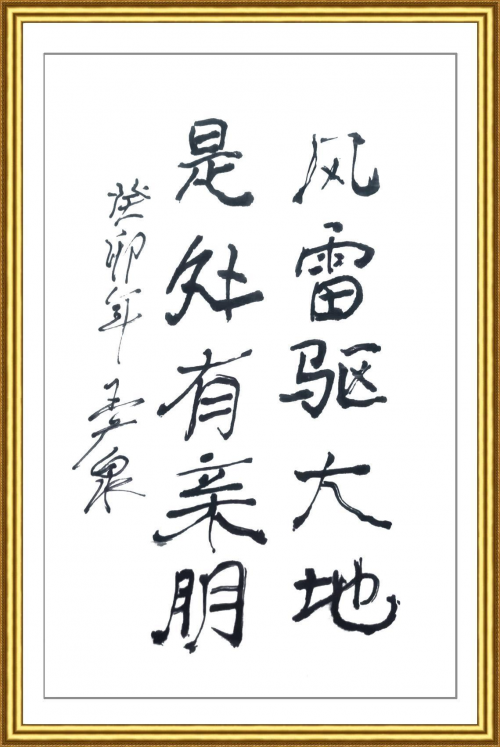 风雷驱大地
是处有亲朋
癸卯年